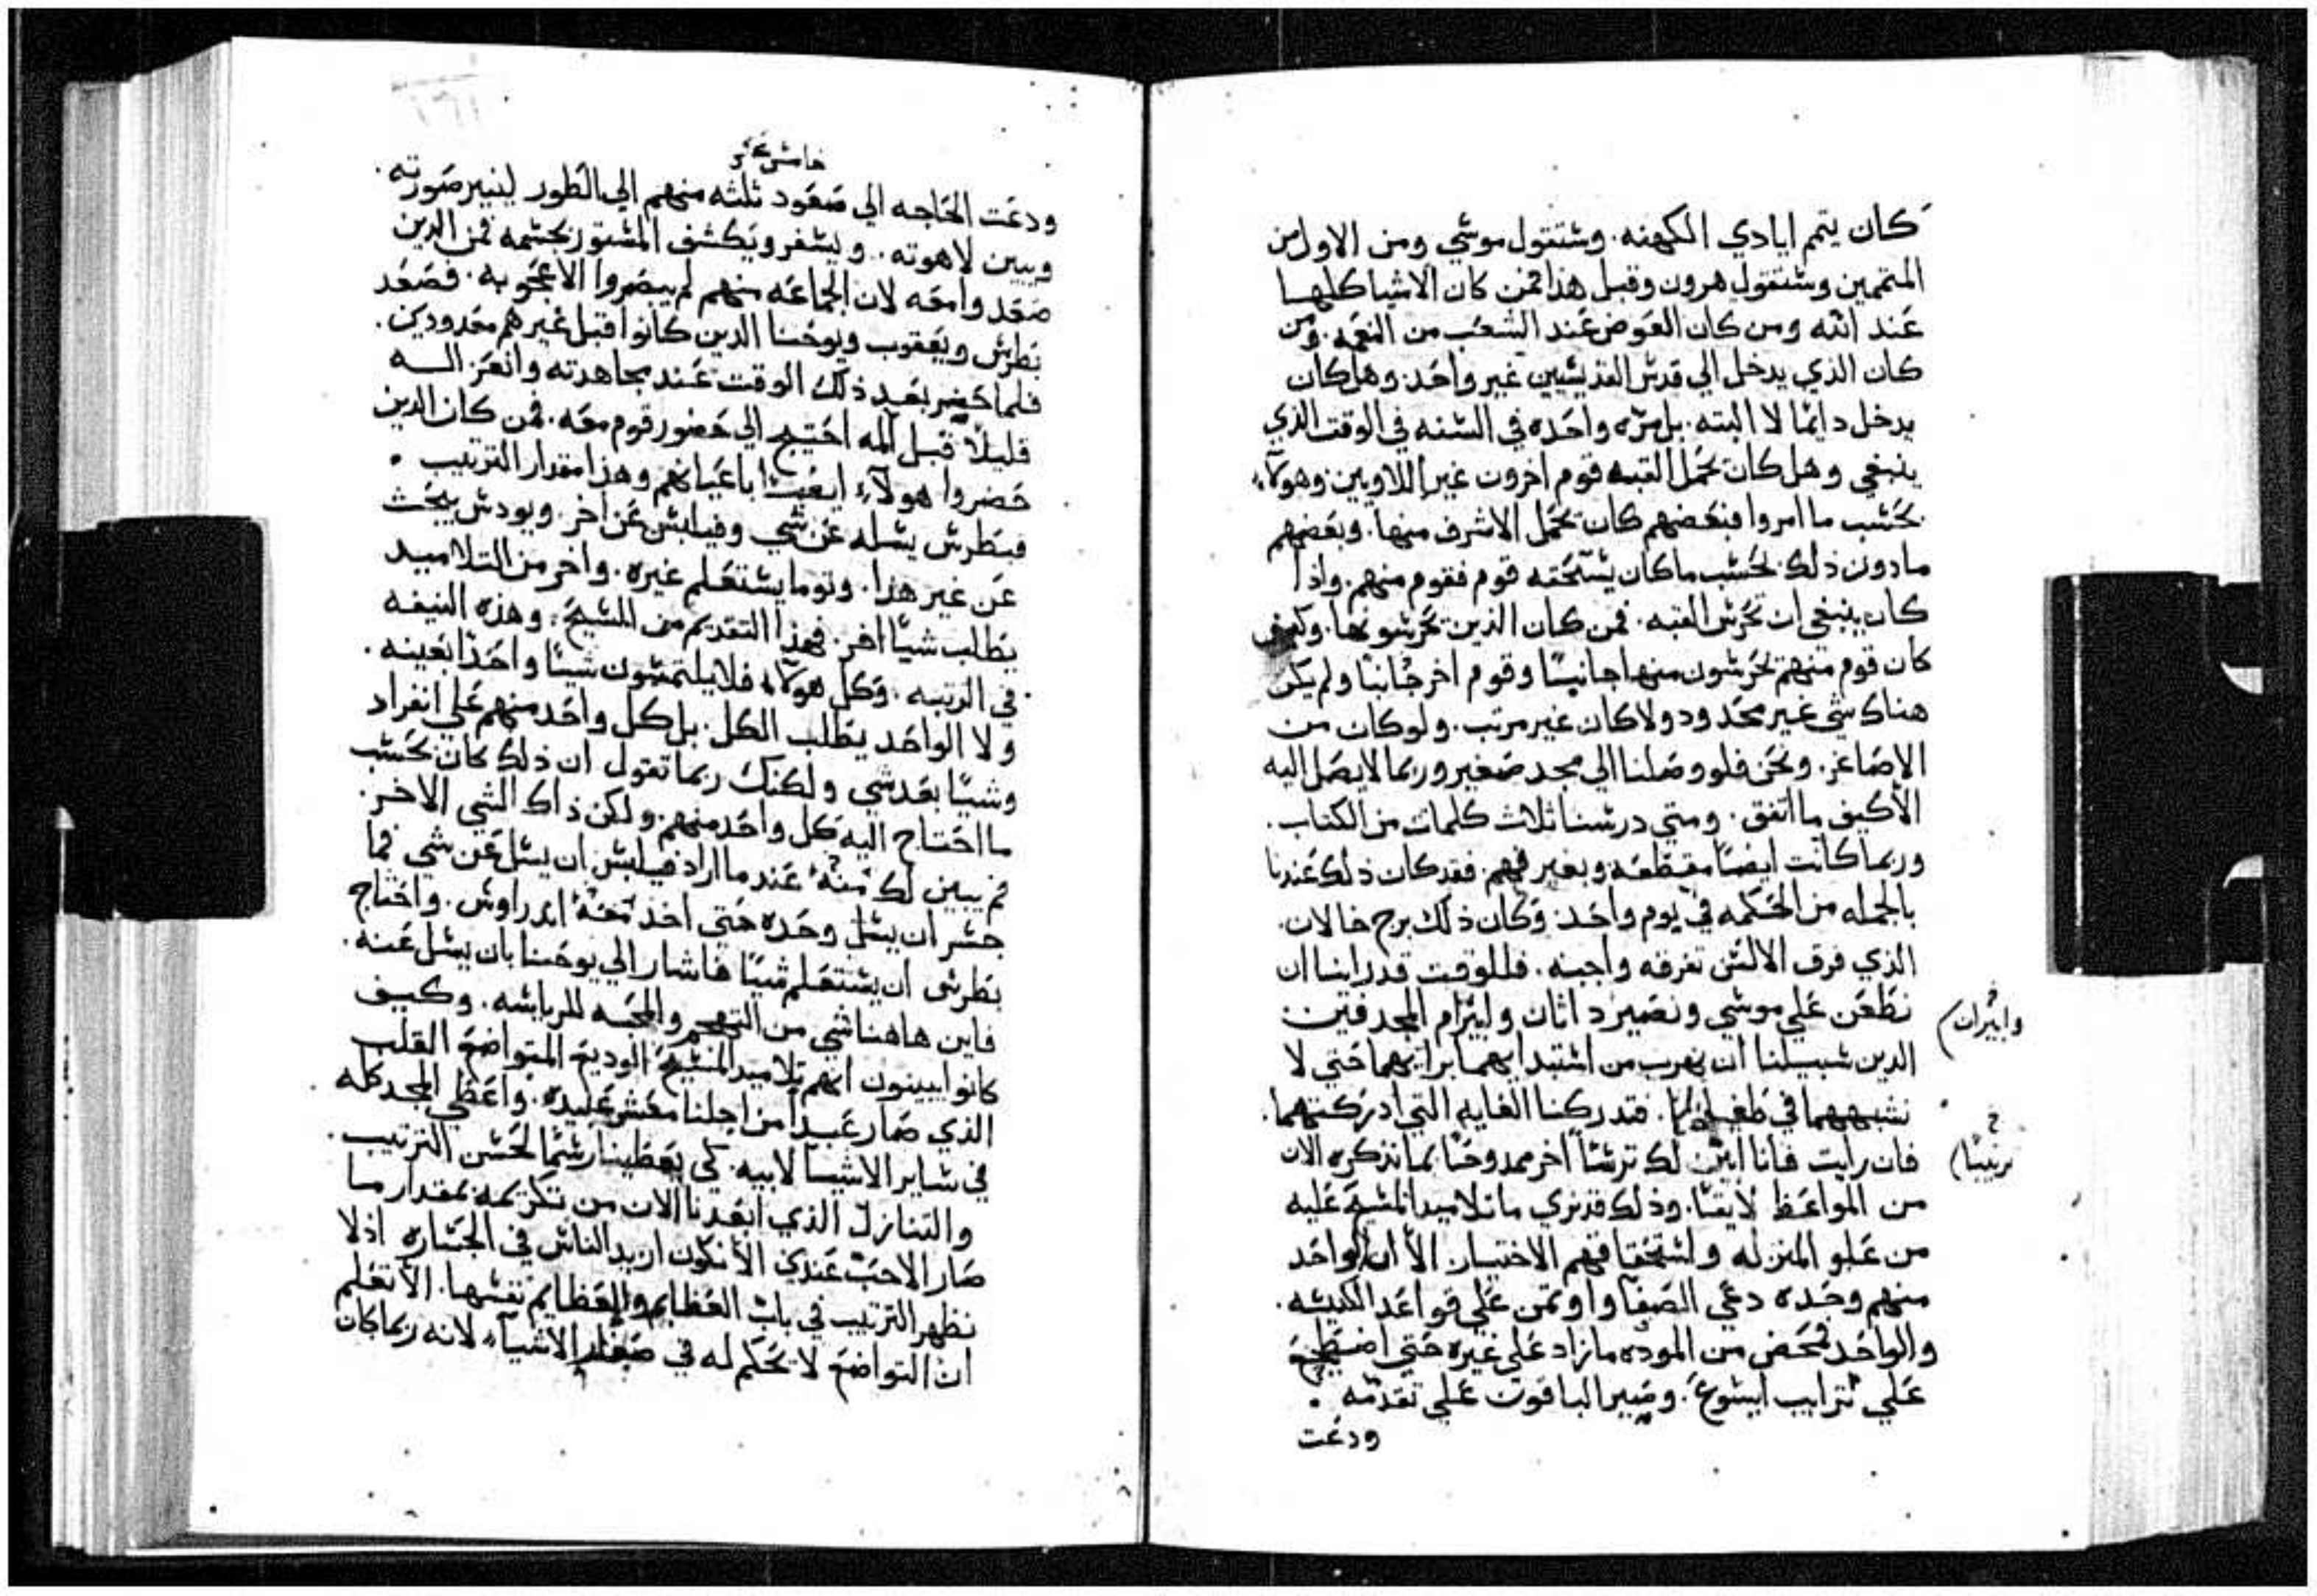 كان يتمم ايادي الكهنه. وستقول موسي ومن الاول من
المتممين وستقول هرون وقبل هذا فمن كان الاشيا كلها
عند الله ومن كان العوض عند الشعب من النغمه. ومن
كان الذي يدخل الي قدس القديسين غير واحد. وهل كان
يدخل دايما لا البته. بل مره واحده في السنه في الوقت الذي
ينبغي وهل كان تحمل القبه قوم اخرون غير اللاويين وهولآء
بحسب ما امروا فبعضهم كان يحمل الاشرف منها. وبعضهم
مادون ذلك بحسب ما كان يستحقه قوم فقوم منهم. واذا
كان ينبغي ان تحرس القبه. فمن كان الذين يحرسونها. وكيف
كان قوم منهم يحرسون منها جانبًا وقوم اخر جانبًا ولم يكن
هناك شي غير محدود ولا كان غير مرتب. ولو كان من
الاصاغر. ونحن فلو وصلنا الي مجد صغير وربما لا يصل اليه
الا كيف ما اتفق. ومتي درسنا ثلاث كلمات من الكتاب.
وربما كانت ايضًا مقطعه وبغير فهم. فقد كان ذلك عندنا
بالجمله من الحكمه في يوم واحد. وكان ذلك برج خالان.
الذي فرق الالسن تفرقه واجبه. فللوقت قد راينا ان
نطعن علي موسي ونصير داثان وابيرام المجدفين
وابيران
الدين سبيلنا ان نهرب من استبدايهما برايهما حتي لا
نشبههما في طغيانهما. فتدركنا الغايه التي ادركتهما.
فان رايت فانا ابين لك ترسًا اخر ممدوحًا بما نذكره الان
ترتيبًا
من المواعظ لايقًا. وذلك قد نري ما تلاميد المسيح عليه
من علو المنزله واستحقاقهم الاختيار. الا ان الواحد
منهم وحده دعي الصفا واوتمن علي قواعد الكنيسه.
والواحد فمحض من الموده ما زاد علي غيره حتي اضطجع
علي ترايب ايسوع. وصير الباقون علي تقدمه.
ودعت
خامس عشر
ودعت الحاجه الي صعود ثلثه منهم الي الطور لينير صورته.
ويبين لاهوته. ويسفر ويكشف المستور بجسمه فمن الدين
صعدوا معه لان الجماعه منهم لم يبصروا الاعجوبه. فصعد
بطرس ويعقوب ويوحنا الدين كانوا قبل غيرهم معدودين.
فلما حضر بعد ذلك الوقت عند مجاهدته وانعزاله
قليلا قبل المه احتيج الي حضور قوم معه. فمن كان الدين
حضروا هولآء ايضًا باعيانهم وهذا مقدار الترتيب.
فبطرس يسله عن شي وفيلبس عن اخر. ويودس يبحث
عن غير هذا. وتوما يستعلم غيره. واخر من التلاميد
يطلب شيًا اخر. فهذا التقديم من المسيح. وهذه النيفه
في الرتبه. وكل هولآء فلا يلتمسون شيًا واحدًا بعينه.
ولا الواحد يطلب الكل. بل كل واحد منهم علي انفراد
وشيًا بعد شي ولكنك ربما تقول ان ذلك كان بحسب
ما احتاج اليه كل واحد منهم. ولكن ذاك الشي الاخر.
فم يبين لك منه عند ما اراد فيلبس ان يسل عن شي فما
جسر ان يسل وحده حتي اخذ معه اندراوس. واحتاج
بطرس ان يستعلم شيًا فاشار الي يوحنا بان يسل عنه.
فاين هاهنا شي من التهجم والمحبه للرياسه. وكيف
كانوا يبينون انهم تلاميد المسيح الوديع المتواضع القلب
الذي صار عبدا من اجلنا معشر عبيده. واعطي المجد كله
في ساير الاشيا لابيه. كي يعطينا رسمًا لحسن الترتيب.
والتنازل الذي ابعدنا الان من تكرمه بمقدار ما
صار الاحب عندي الا نكون ازيد الناس في الجساره اذ لا
نظهر الترتيب في باب العظايم والعظايم نفسها. الا تعلم
ان التواضع لا يحكم له في صغار الاشيآء لانه ربما كان